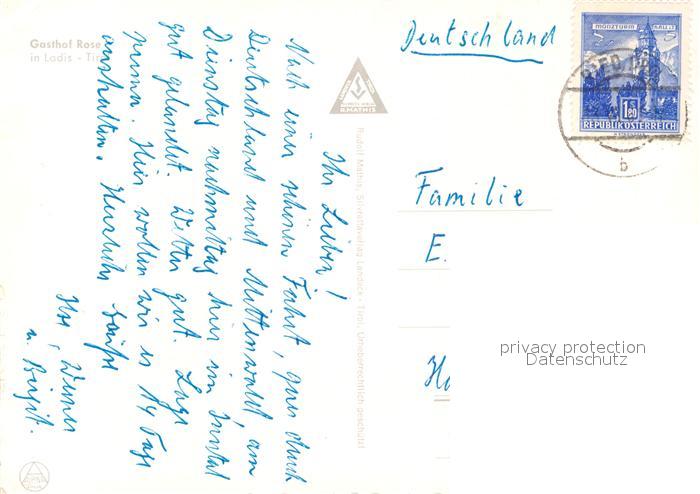 Gasthof Rose
in Ladis - Tir
Ihr Lieben!
Nach einer schönen Fahrt, quer durch
Deutschland und Mittenwald, am
Dienstag nachmittag hier im Inntal
gut gelandet. Wetter gut. Lage
prima. Hier wollen wir es 14 Tage
aushalten. Herzliche Grüße
Werner
u. Birgit.
R. MATHIS
Rudolf Mathis, Silvrettaverlag Landeck - Tirol. Urheberrechtlich geschützt
Deutschland
MÜNZTURM HALL i.T.
1.80
REPUBLIK ÖSTERREICH
b
Familie
E.
privacy protection
Datenschutz